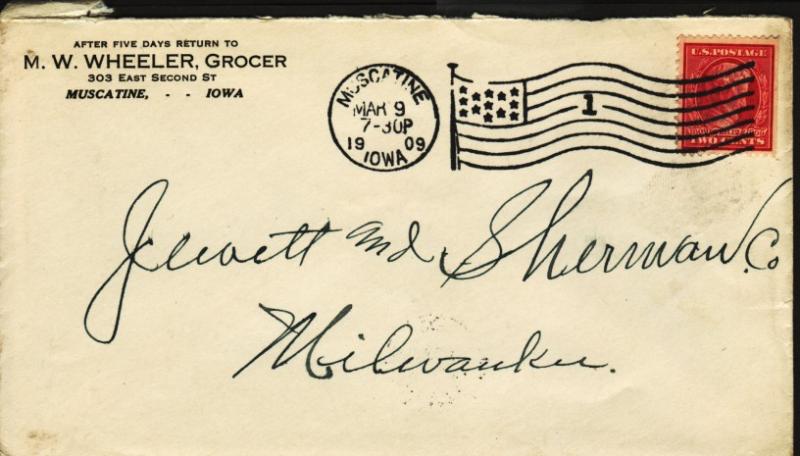 AFTER FIVE DAYS RETURN TO
M. W. WHEELER, GROCER
303 EAST SECOND ST
MUSCATINE, - - IOWA
MUSCATINE
MAR 9
7-30P
19 09
IOWA
1
U.S. POSTAGE
TWO CENTS
Jewett and Sherman Co
Milwaukee.